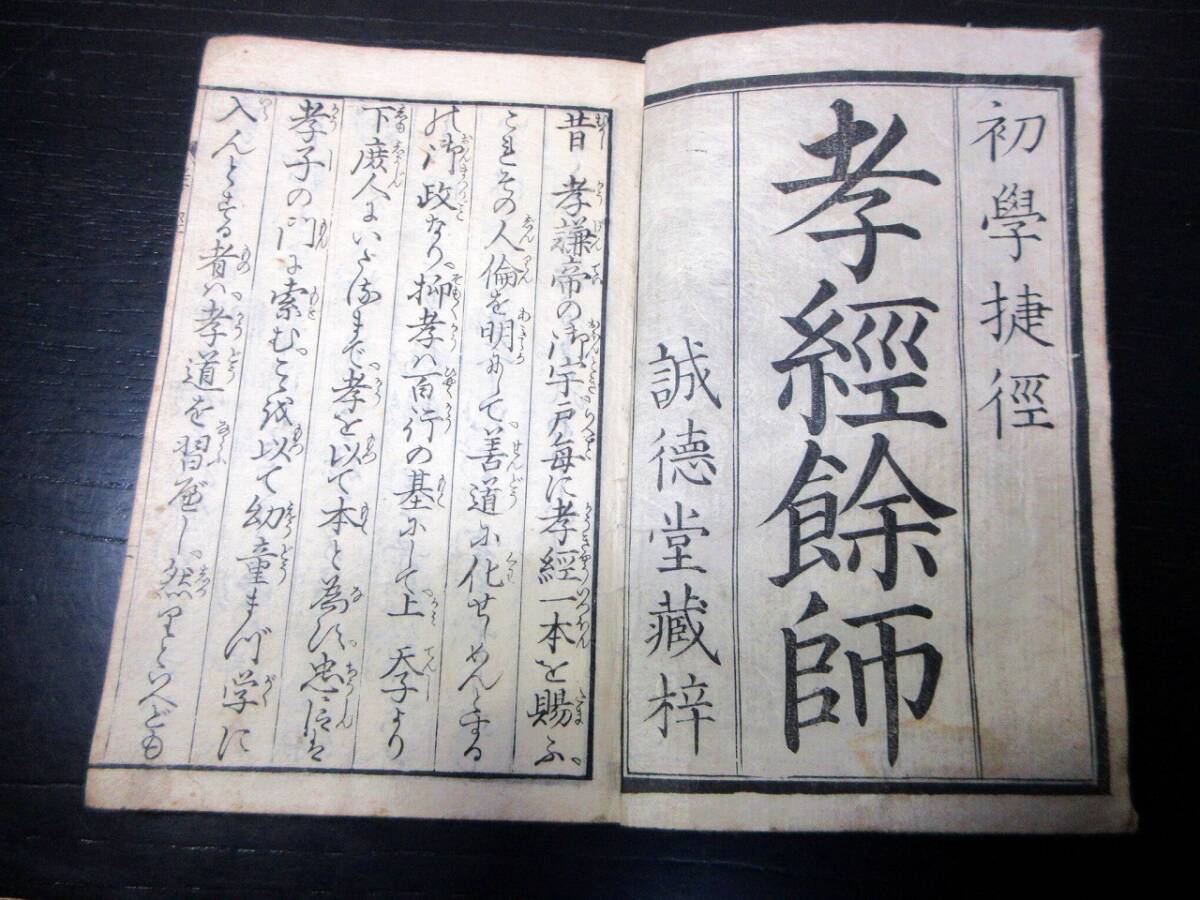 初學捷徑
孝經餘師
誠德堂藏梓
昔孝謙帝の御宇戸毎に孝經一本を賜ふ。
これその人倫を明にして善道に化せしめんとする
の御政なり。抑孝ハ百行の基にして上天子より
下庶人にいたるまで孝を以て本と為す。忠臣は
孝子の門に索む。こゝを以て幼童まづ学に
入んとする者ハ。孝道を習べし。然りといへども